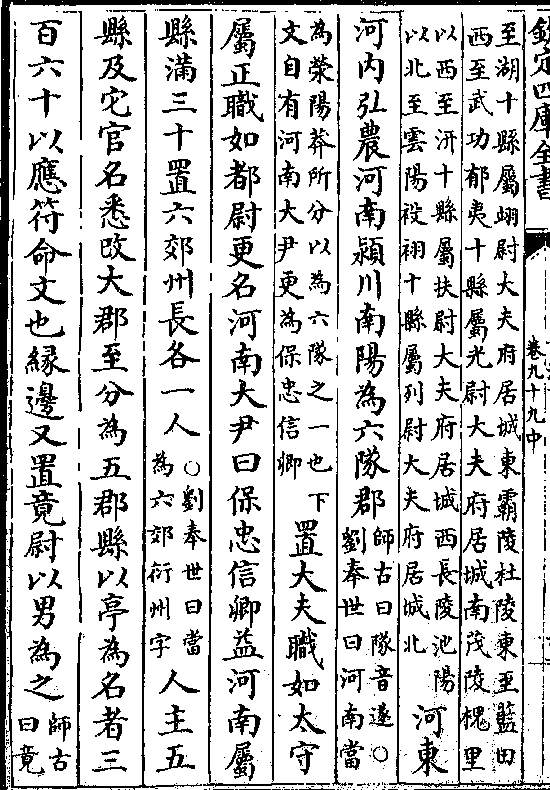 欽定四庫全書
卷九十九中
至湖十縣屬翊尉大夫府居城東霸陵杜陵東至藍田
西至武功郁夷十縣屬光尉大夫府居城南茂陵槐里
以西至汧十縣屬扶尉大夫府居城西長陵池陽
以北至雲陽祋祤十縣屬列尉大夫府居城北
河東
河内弘農河南潁川南陽為六隊郡
師古曰隊音遂○
劉奉世曰河南當
為滎陽莽所分以為六隊之一也下
文自有河南大尹更為保忠信卿
置大夫職如太守
屬正職如都尉更名河南大尹曰保忠信卿益河南屬
縣滿三十置六郊州長各一人
○劉奉世曰當
為六郊衍州字
人主五
縣及它官名悉改大郡至分為五郡縣以亭為名者三
百六十以應符命文也緣邊又置竟尉以男為之
師古
曰竟